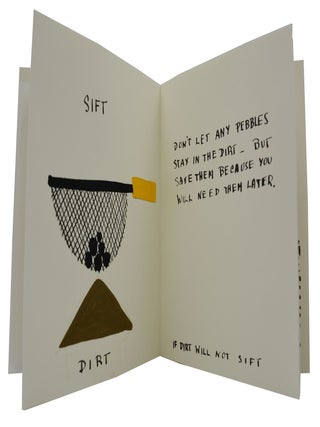 SIFT
DIRT
DON'T LET ANY PEBBLES
STAY IN THE DIRT – BUT
SAVE THEM BECAUSE YOU
WILL NEED THEM LATER.
IF DIRT WILL NOT SIFT